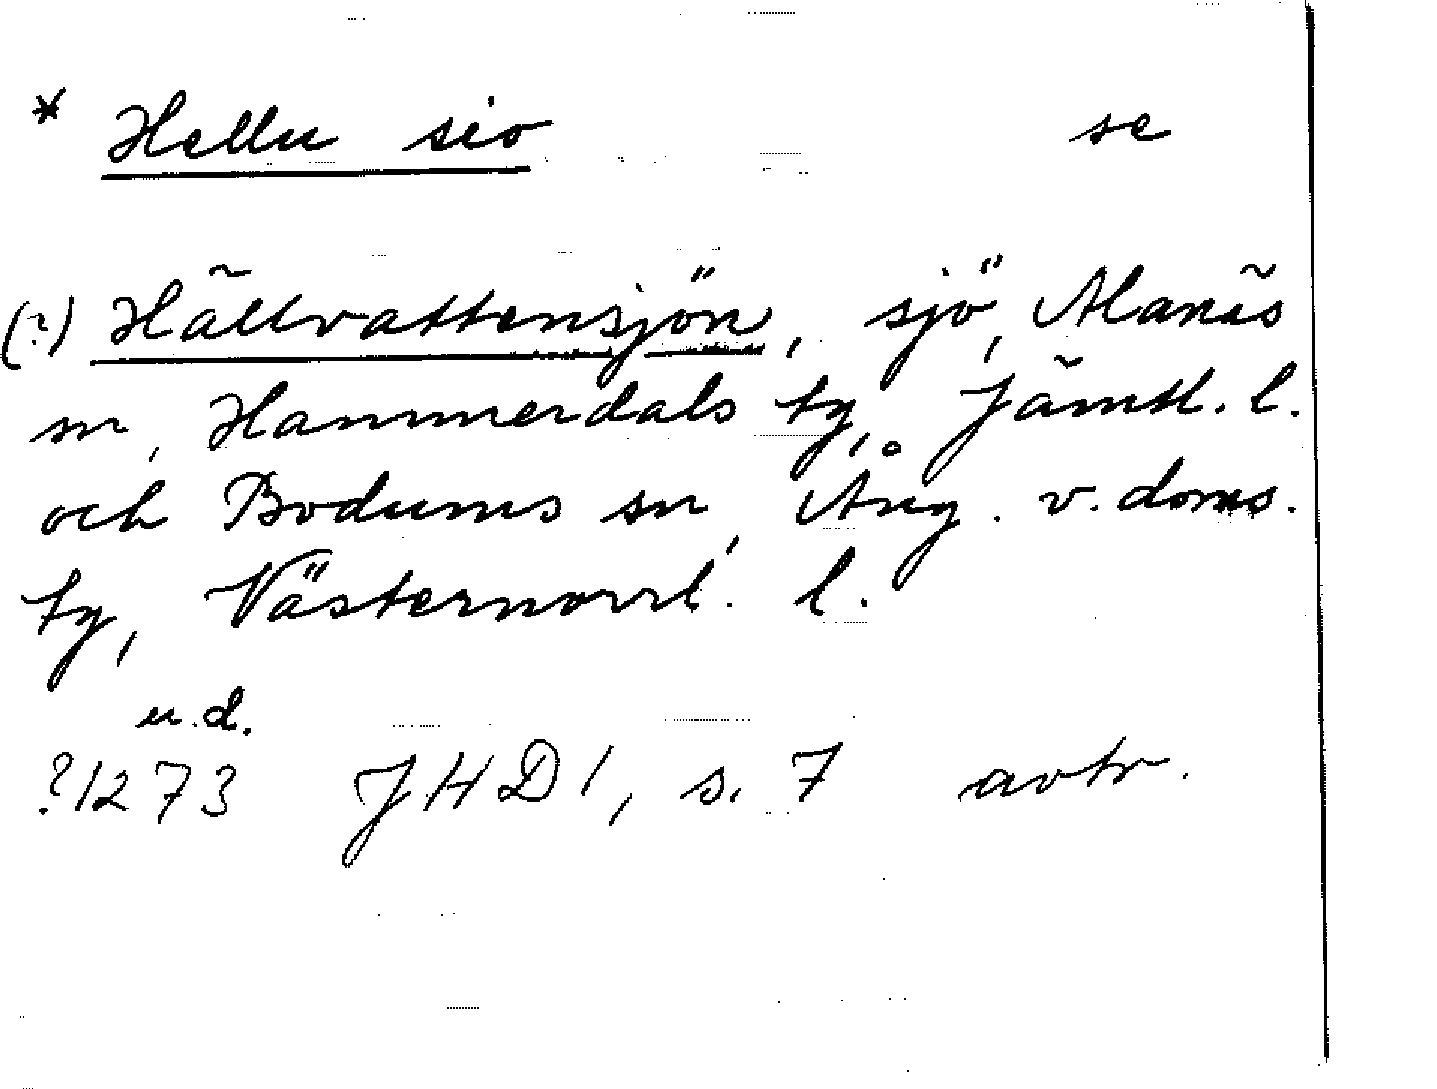 * Hellu sio se
(?) Hällvattensjön, sjö, Alanäs
sn, Hammerdals tg, Jämtl. l.
och Bodums sn, Ång. v. doms.
tg, Västernorrl. l.
u.d.
?1273 JHD 1, s. 7 avtr.